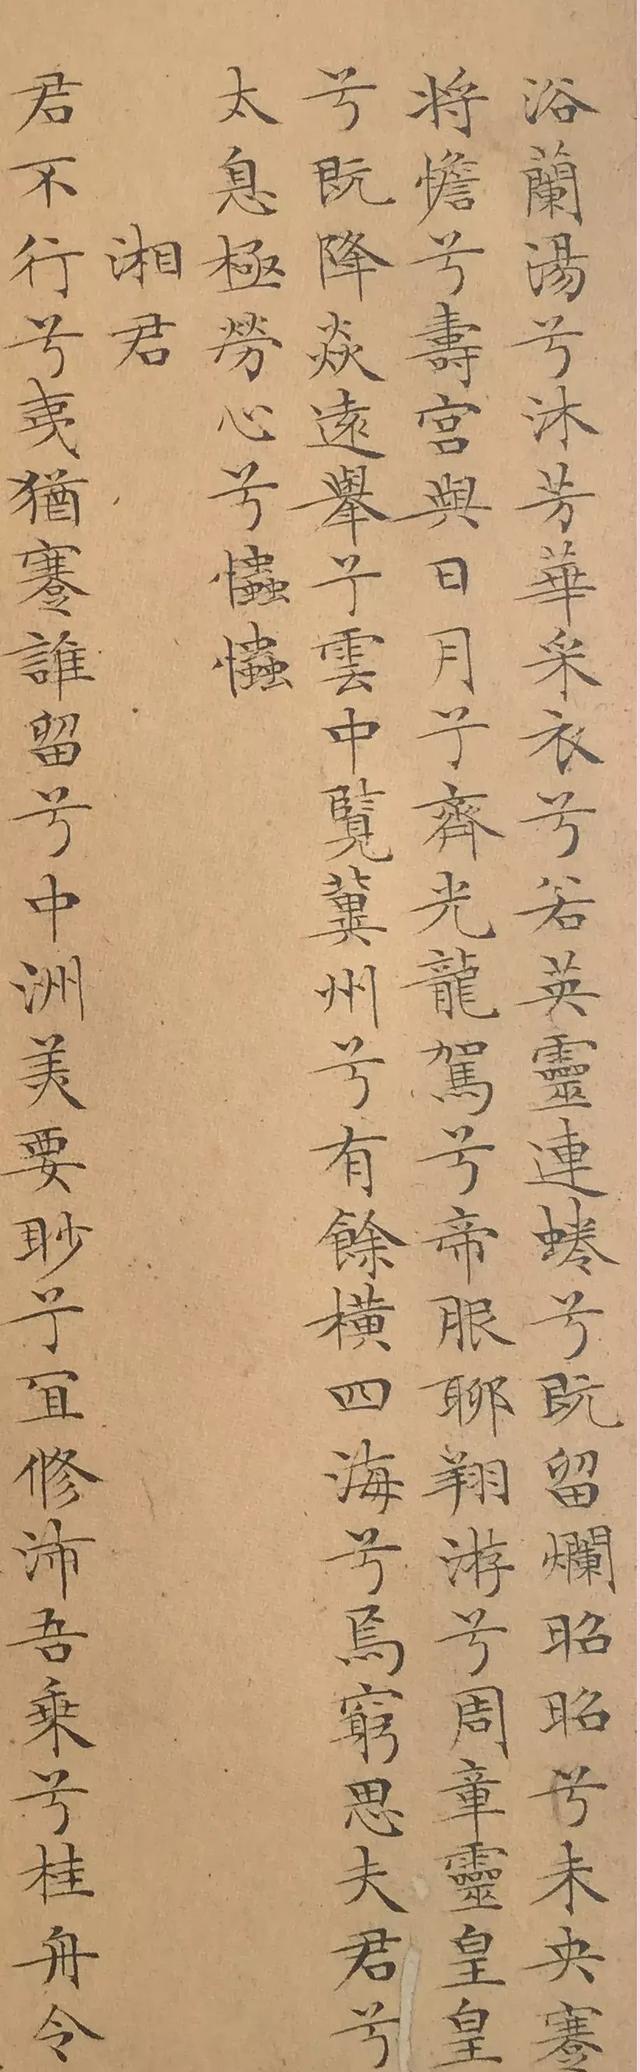 浴蘭湯兮沐芳華采衣兮若英靈連蜷兮既留爛昭昭兮未央蹇
將憺兮壽宮與日月兮齊光龍駕兮帝服聊翔游兮周章靈皇皇
兮既降焱遠舉兮雲中覽冀州兮有餘橫四海兮焉窮思夫君兮
太息極勞心兮𢥞𢥞
湘君
君不行兮夷猶蹇誰留兮中洲美要眇兮宜修沛吾乘兮桂舟令